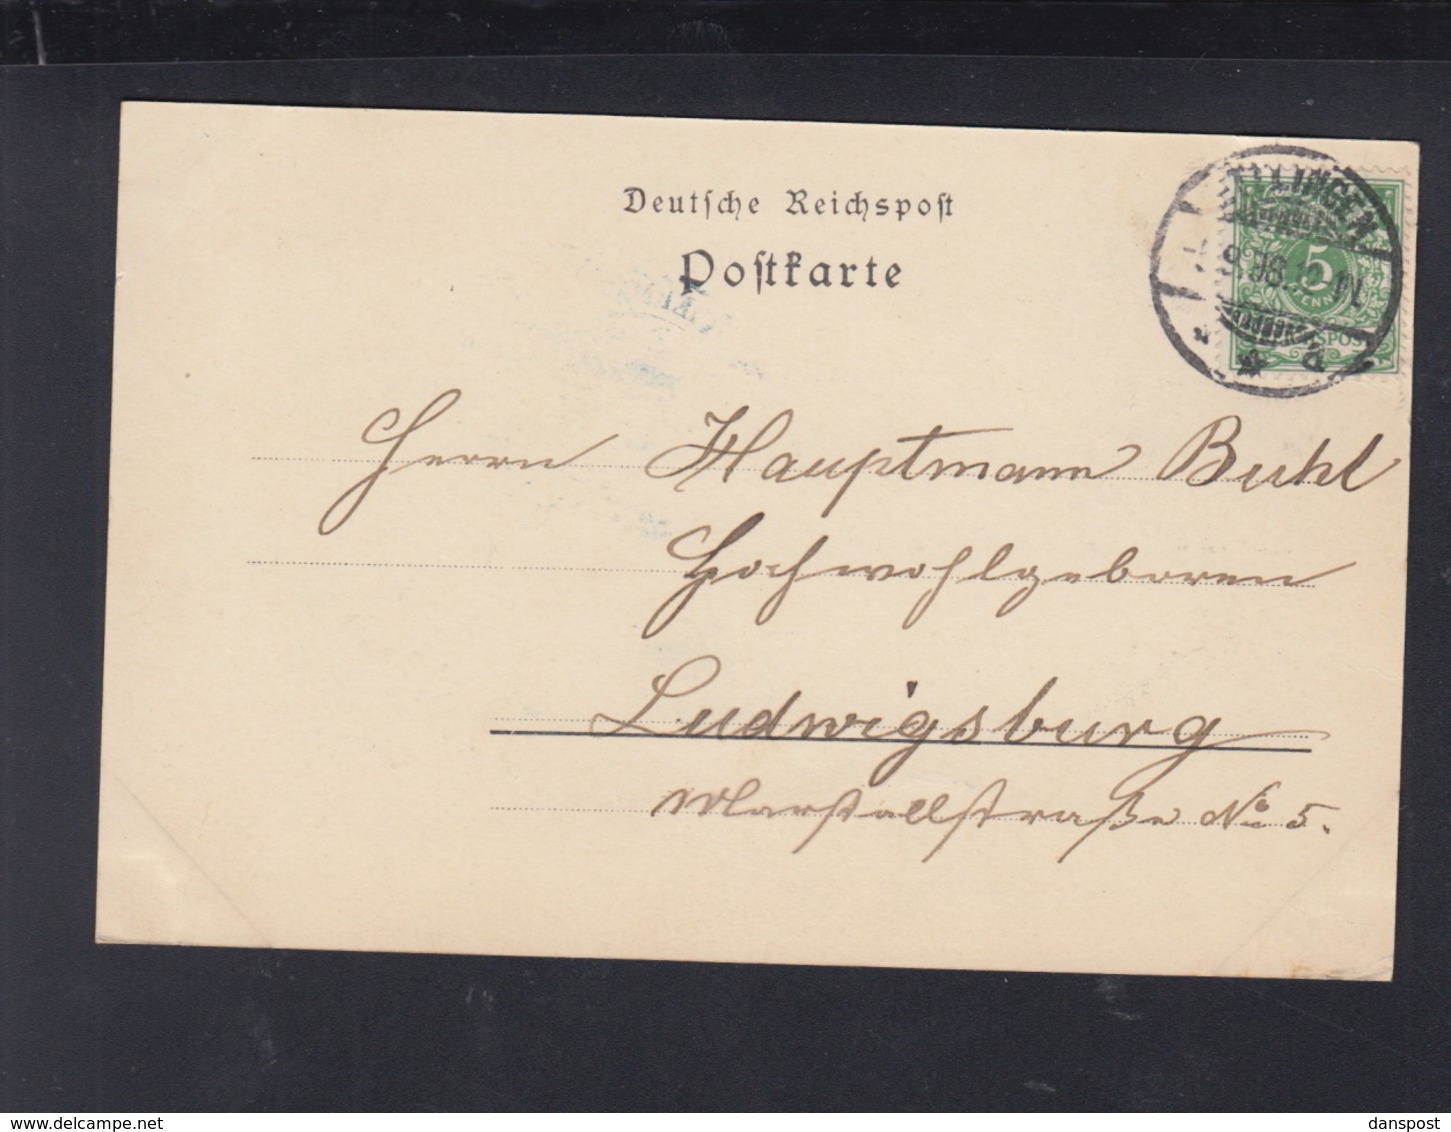 Deutsche Reichspost
Postkarte
LLINGEN
9.98.
5
PFENNIG
REICHSPOST
Herrn Hauptmann Buhl
Hochwohlgeboren
Ludwigsburg
Marstallstraße No 5.
www.delcampe.net
danspost